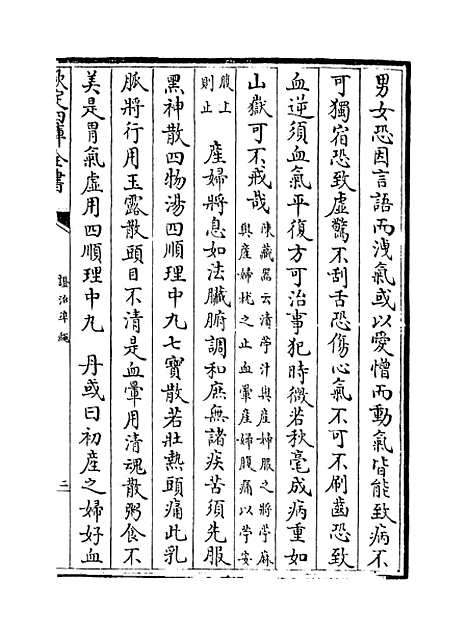 男女恐因言語而洩氣或以愛憎而動氣皆能致病不
可獨宿恐致虛驚不刮舌恐傷心氣不可不刷齒恐致
血逆須血氣平復方可治事犯時微若秋毫成病重如
山嶽可不戒哉
陳藏器云清苧汁與産婦服之將苧麻
與産婦枕之止血暈産婦腹痛以苧安
腹上
則止
産婦將息如法臟腑調和庶無諸疾苦須先服
黑神散四物湯四順理中丸七寶散若壯熱頭痛此乳
脈將行用玉露散頭目不清是血暈用清魂散粥食不
美是胃氣虛用四順理中丸 丹或曰初産之婦好血
欽定四庫全書
證治準繩
二